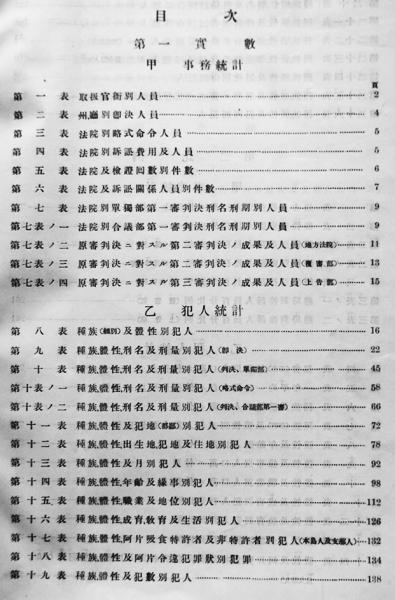 目次
第一 實數
甲 事務統計
頁
第一表 取扱官衙別人員 2
第二表 州廳別卽決人員 4
第三表 法院別略式命令人員 5
第四表 法院別訴訟費用及人員 5
第五表 法院及檢證囘數別件數 6
第六表 法院及訴訟關係人員別件數 7
第七表 法院別單獨部第一審判決刑名刑期別人員 9
第七表ノ一 法院別合議部第一審判決刑名刑期別人員 9
第七表ノ二 原審判決ニ對スル第二審判決ノ成果及人員(地方法院) 11
第七表ノ三 原審判決ニ對スル第二審判決ノ成果及人員(覆審部) 13
第七表ノ四 原審判決ニ對スル第三審判決ノ成果及人員(上告部) 15
乙 犯人統計
第八表 種族(細別)及體性別犯人 16
第九表 種族、體性、刑名及刑量別犯人(卽決) 22
第十表 種族、體性、刑名及刑量別犯人(判決、單獨部) 45
第十表ノ一 種族、體性、刑名及刑量別犯人(略式命令) 58
第十表ノ二 種族、體性、刑名及刑量別犯人(判決、合議部第一審) 66
第十一表 種族、體性及犯地(郡部)別犯人 72
第十二表 種族、體性、出生地、犯地及住地別犯人 78
第十三表 種族、體性及月別犯人 92
第十四表 種族、體性、年齡及緣事別犯人 98
第十五表 種族、體性、職業及地位別犯人 112
第十六表 種族、體性、成育、敎育及生活別犯人 126
第十七表 種族、體性、阿片吸食特許者及非特許者別犯人(本島人及支那人) 132
第十八表 種族、體性及阿片令違犯罪狀別犯罪 134
第十九表 種族、體性及犯數別犯人 138